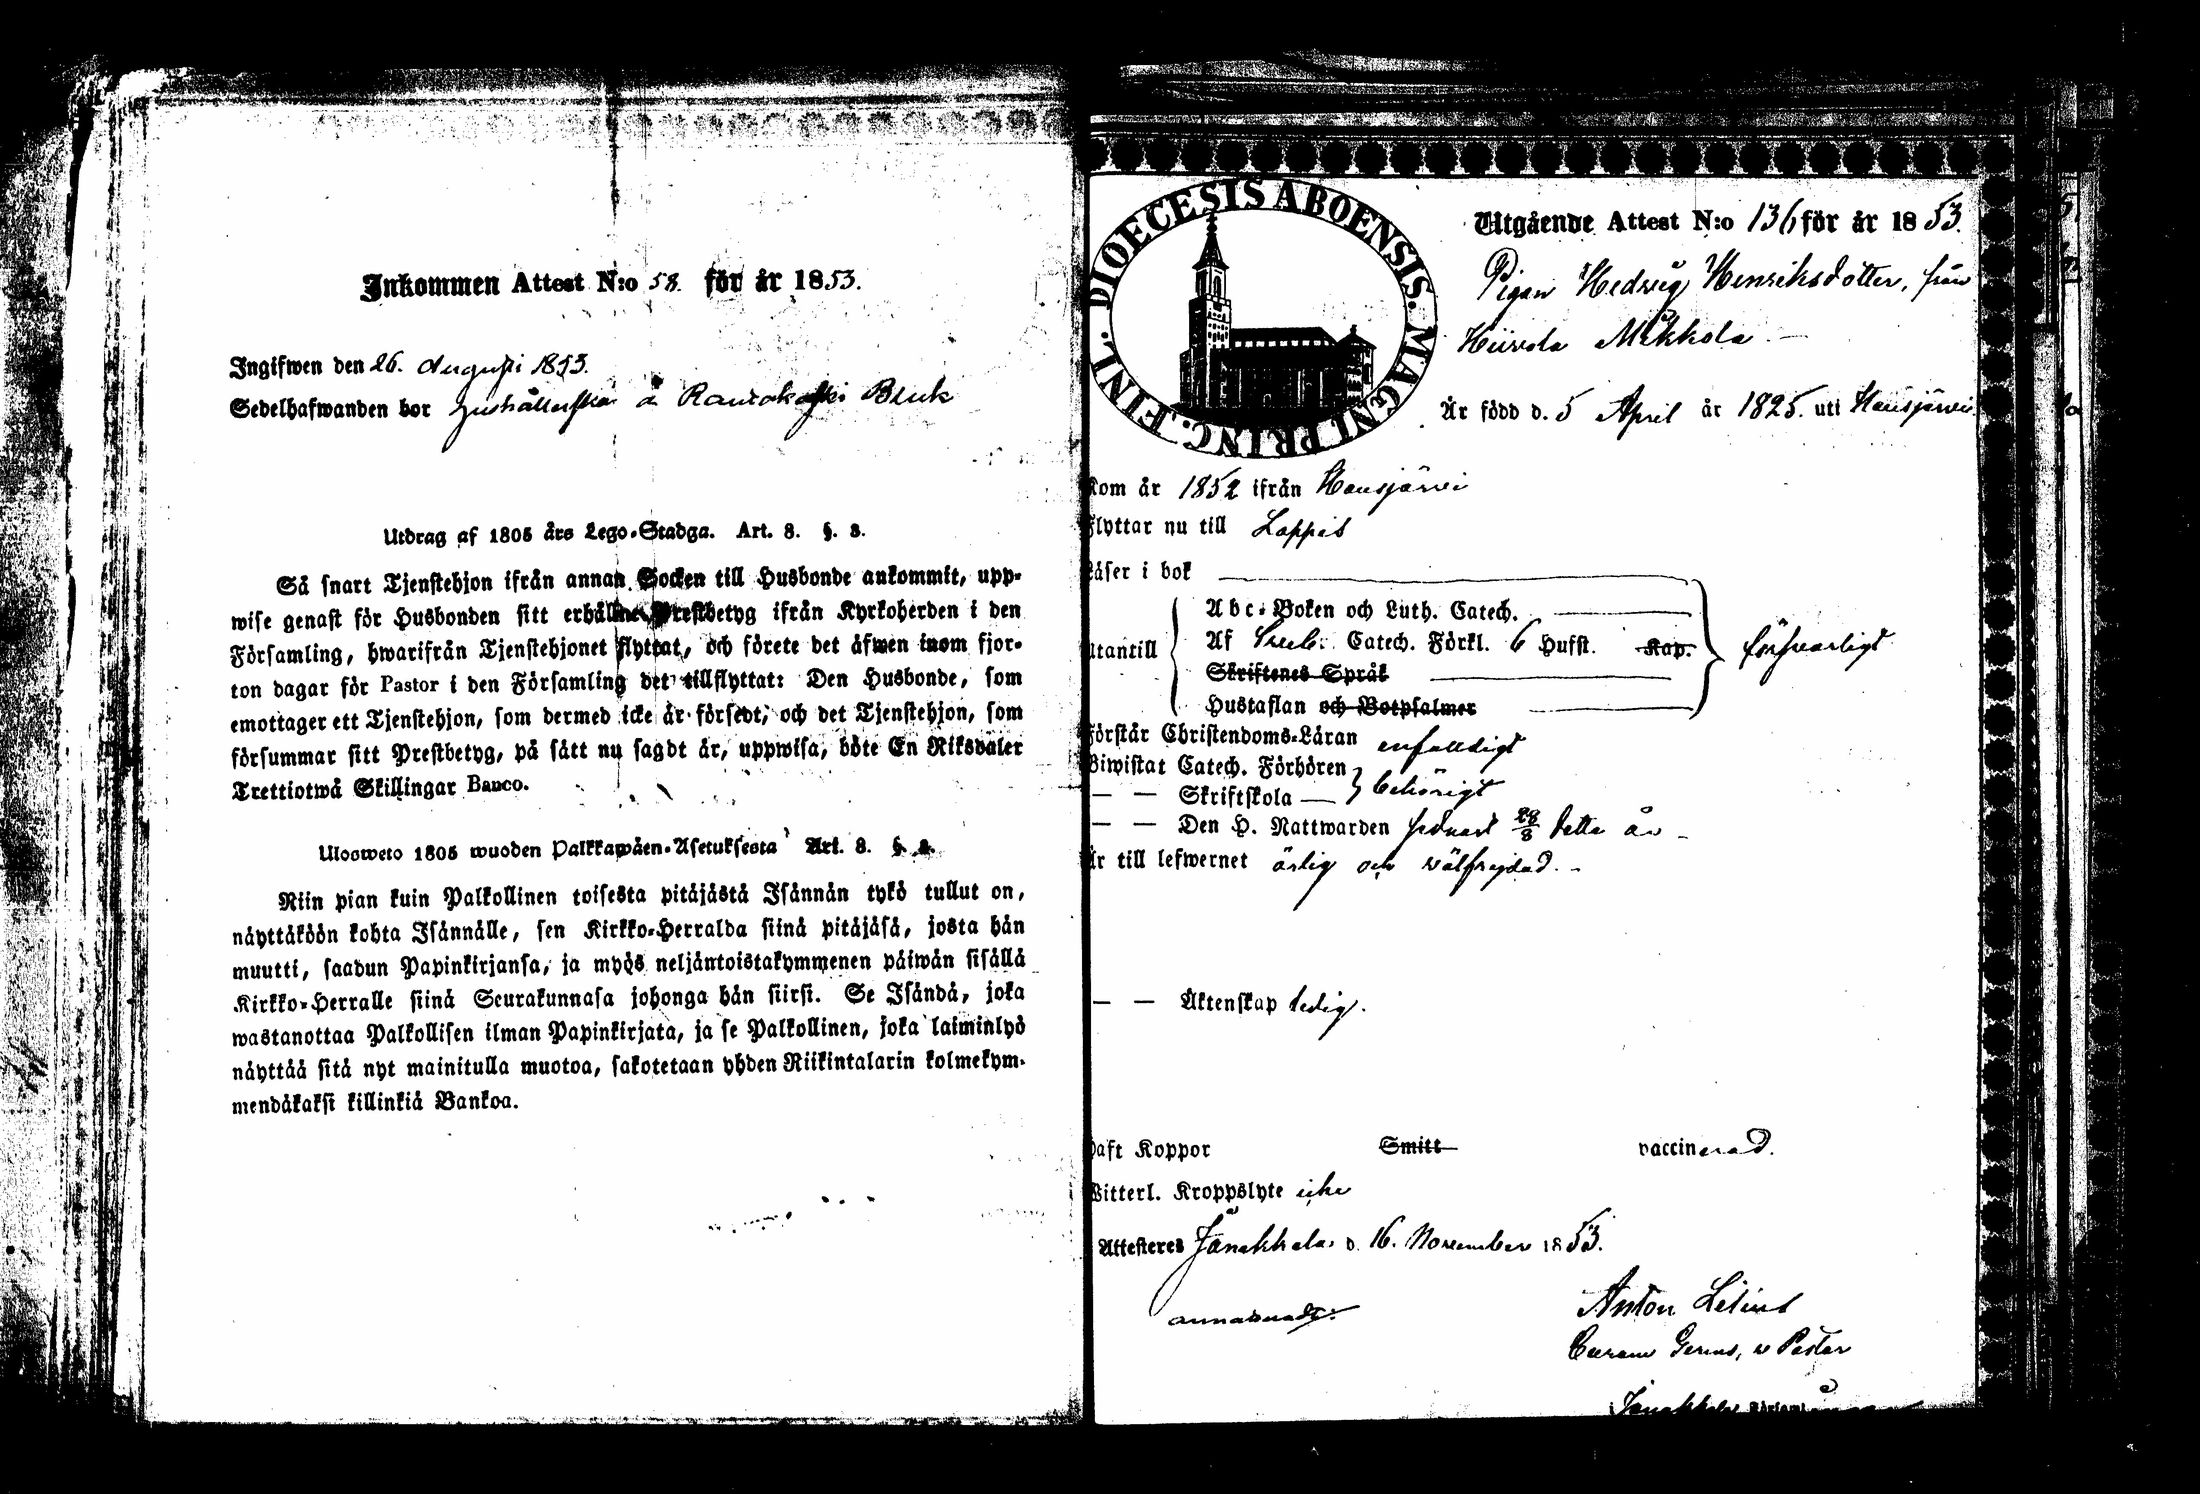 Inkommen Attest N:o 58. för år 1853.
Ingifwen den 26. Augusti 1853.
Sedelhafwanden bor å Bruk
Utdrag af 1805 års Lego-Stadga. Art. 8. §. 3.
Så snart Tjenstehjon ifrån annan Socken till Husbonde ankommit, upp-
wise genast för Husbonden sitt erhållne Prestbetyg ifrån Kyrkoherden i den
Församling, hwarifrån Tjenstehjonet flyttat, och förete det äfwen inom fjor-
ton dagar för Pastor i den Församling det tillflyttat: Den Husbonde, som
emottager ett Tjenstehjon, som dermed icke är försedt, och det Tjenstehjon, som
försummar sitt Prestbetyg, på sätt nu sagdt är, uppwisa, böte En Riksdaler
Trettiotwå Skillingar Banco.
Ulosweto 1805 wuoden Palkkawäen-Asetuksesta Art. 8. §. 3.
Niin pian kuin Palkollinen toisesta pitäjästä Isännän tykö tullut on,
näyttäköön kohta Isännälle, sen Kirkko-Herralda siinä pitäjäsä, josta hän
muutti, saadun Papinkirjansa, ja myös neljäntoistakymmenen päiwän sisällä
Kirkko-Herralle siinä Seurakunnasa johonga hän siirsi. Se Isändä, joka
wastanottaa Palkollisen ilman Papinkirjata, ja se Palkollinen, joka laiminlyö
näyttää sitä nyt mainitulla muotoa, sakotetaan yhden Riikintalarin kolmekym-
mendäkaksi killinkiä Bankoa.
DIOECESIS ABOENSIS. MAGNI PRINC. FINL.
Utgående Attest N:o 136 för år 1853.
Pigan Hedvig Henriksdotter, från
Hiivola Mikkola
Är född d. 5 April år 1825. uti Hausjärvi
Kom år 1852 ifrån Hausjärvi
Flyttar nu till Loppis
Läser i bok
Utantill
Abc-Boken och Luth. Catech.
Af Sveb. Catech. Förkl. 6 Hufst. Kap.
försvarligt
Skriftenes Språk
Hustaflan och Botpsalmer
Förstår Christendoms-Läran enfaldigt
Biwistat Catech. Förhören
— — Skriftskola — behörigt
— — Den H. Nattwarden sednast 28/8 detta år
Är till lefwernet ärlig och välfrejdad.
— — Äktenskap ledig.
Haft Koppor Smitt vaccinerad.
Witterl. Kroppslyte icke
Attesteres Janakkala d. 16. November 1853.
Anton Lilius
v Pastor
Janakkala